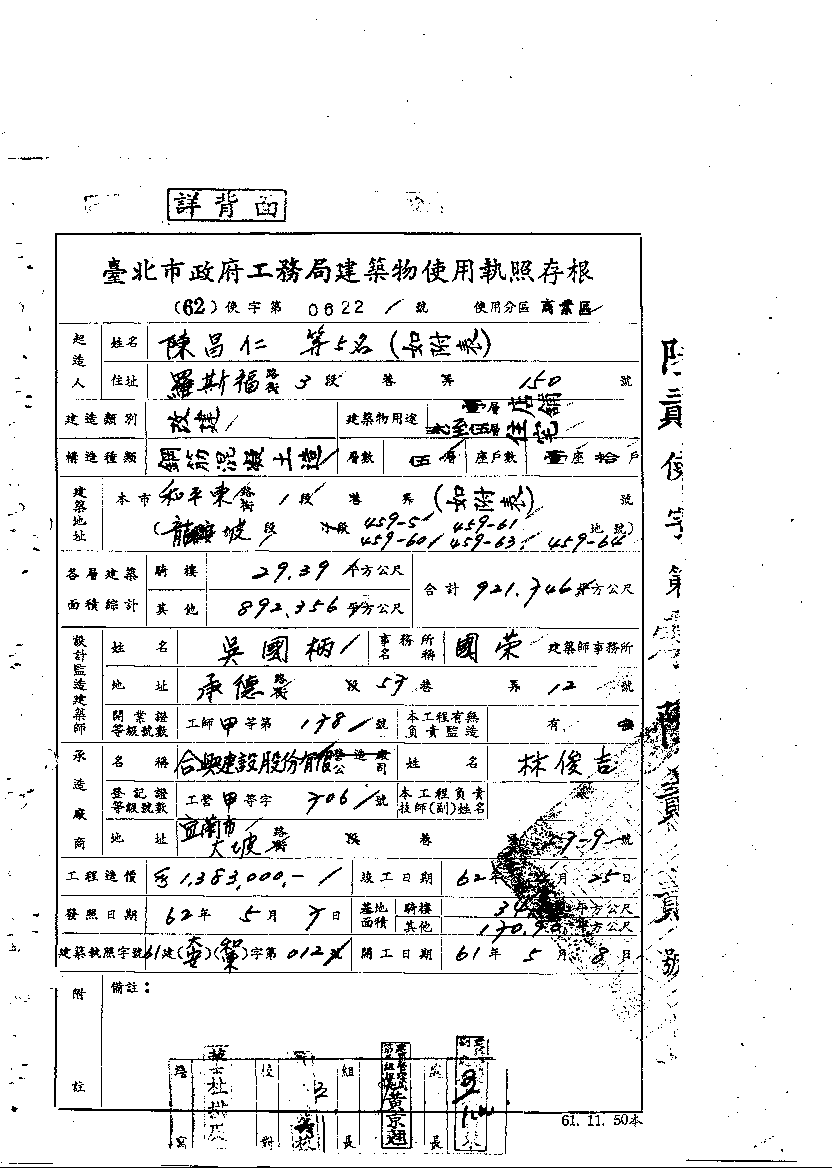 詳背面
臺北市政府工務局建築物使用執照存根
(62)使字第 0622 號 使用分區 商業區
起造人 姓名 陳昌仁 等5名(如附表)
住址 羅斯福路街 3段 巷 弄 150 號
建造類別 改建 建築物用途 壹層店舖 貳至伍層住宅
構造種類 鋼筋混凝土造 層數 伍層 座戶數 壹座拾戶
建築地址 本市 和平東路街 1段 巷 弄 (如附表) 號
(龍坡段 段 459-5 459-61 地號)
459-60 459-63 459-64
各層建築面積綜計 騎樓 29.39 平方公尺 合計 921.746 平方公尺
其他 892.356 平方公尺
設計監造建築師 姓名 吳國柄 事務所名稱 國榮 建築師事務所
地址 承德路街 段 57巷 弄 12 號
開業證等級號數 工師甲等第 1781 號 本工程有無負責監造 有
承造廠商 名稱 合興建設股份有限營造廠公司 姓名 林俊吉
登記證等級號數 工營甲等字 706 號 本工程負責技師(副)姓名
地址 宜蘭市大坡路街 段 巷 弄 號
工程造價 1,383,000,- 竣工日期 62年 月 25日
發照日期 62年 5月 7日 基地面積 騎樓 平方公尺
其他 平方公尺
建築執照字號 61建( )( )字第 012 號 開工日期 61年 5月 8日
附註 備註:
繕寫 校對 組長 黃京翹 處長
61.11.50本